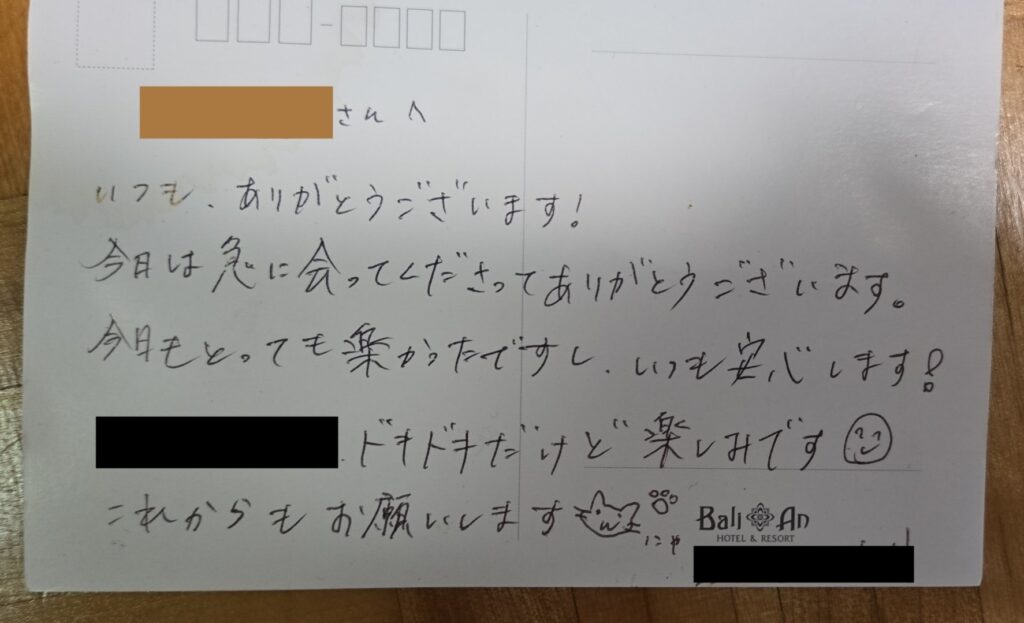 さんへ
いつも、ありがとうございます!
今日は急に会ってくださってありがとうございます。
今日もとっても楽かったですし、いつも安心します!
ドキドキだけど楽しみです
これからもお願いします
にゃ
Bali An
HOTEL & RESORT